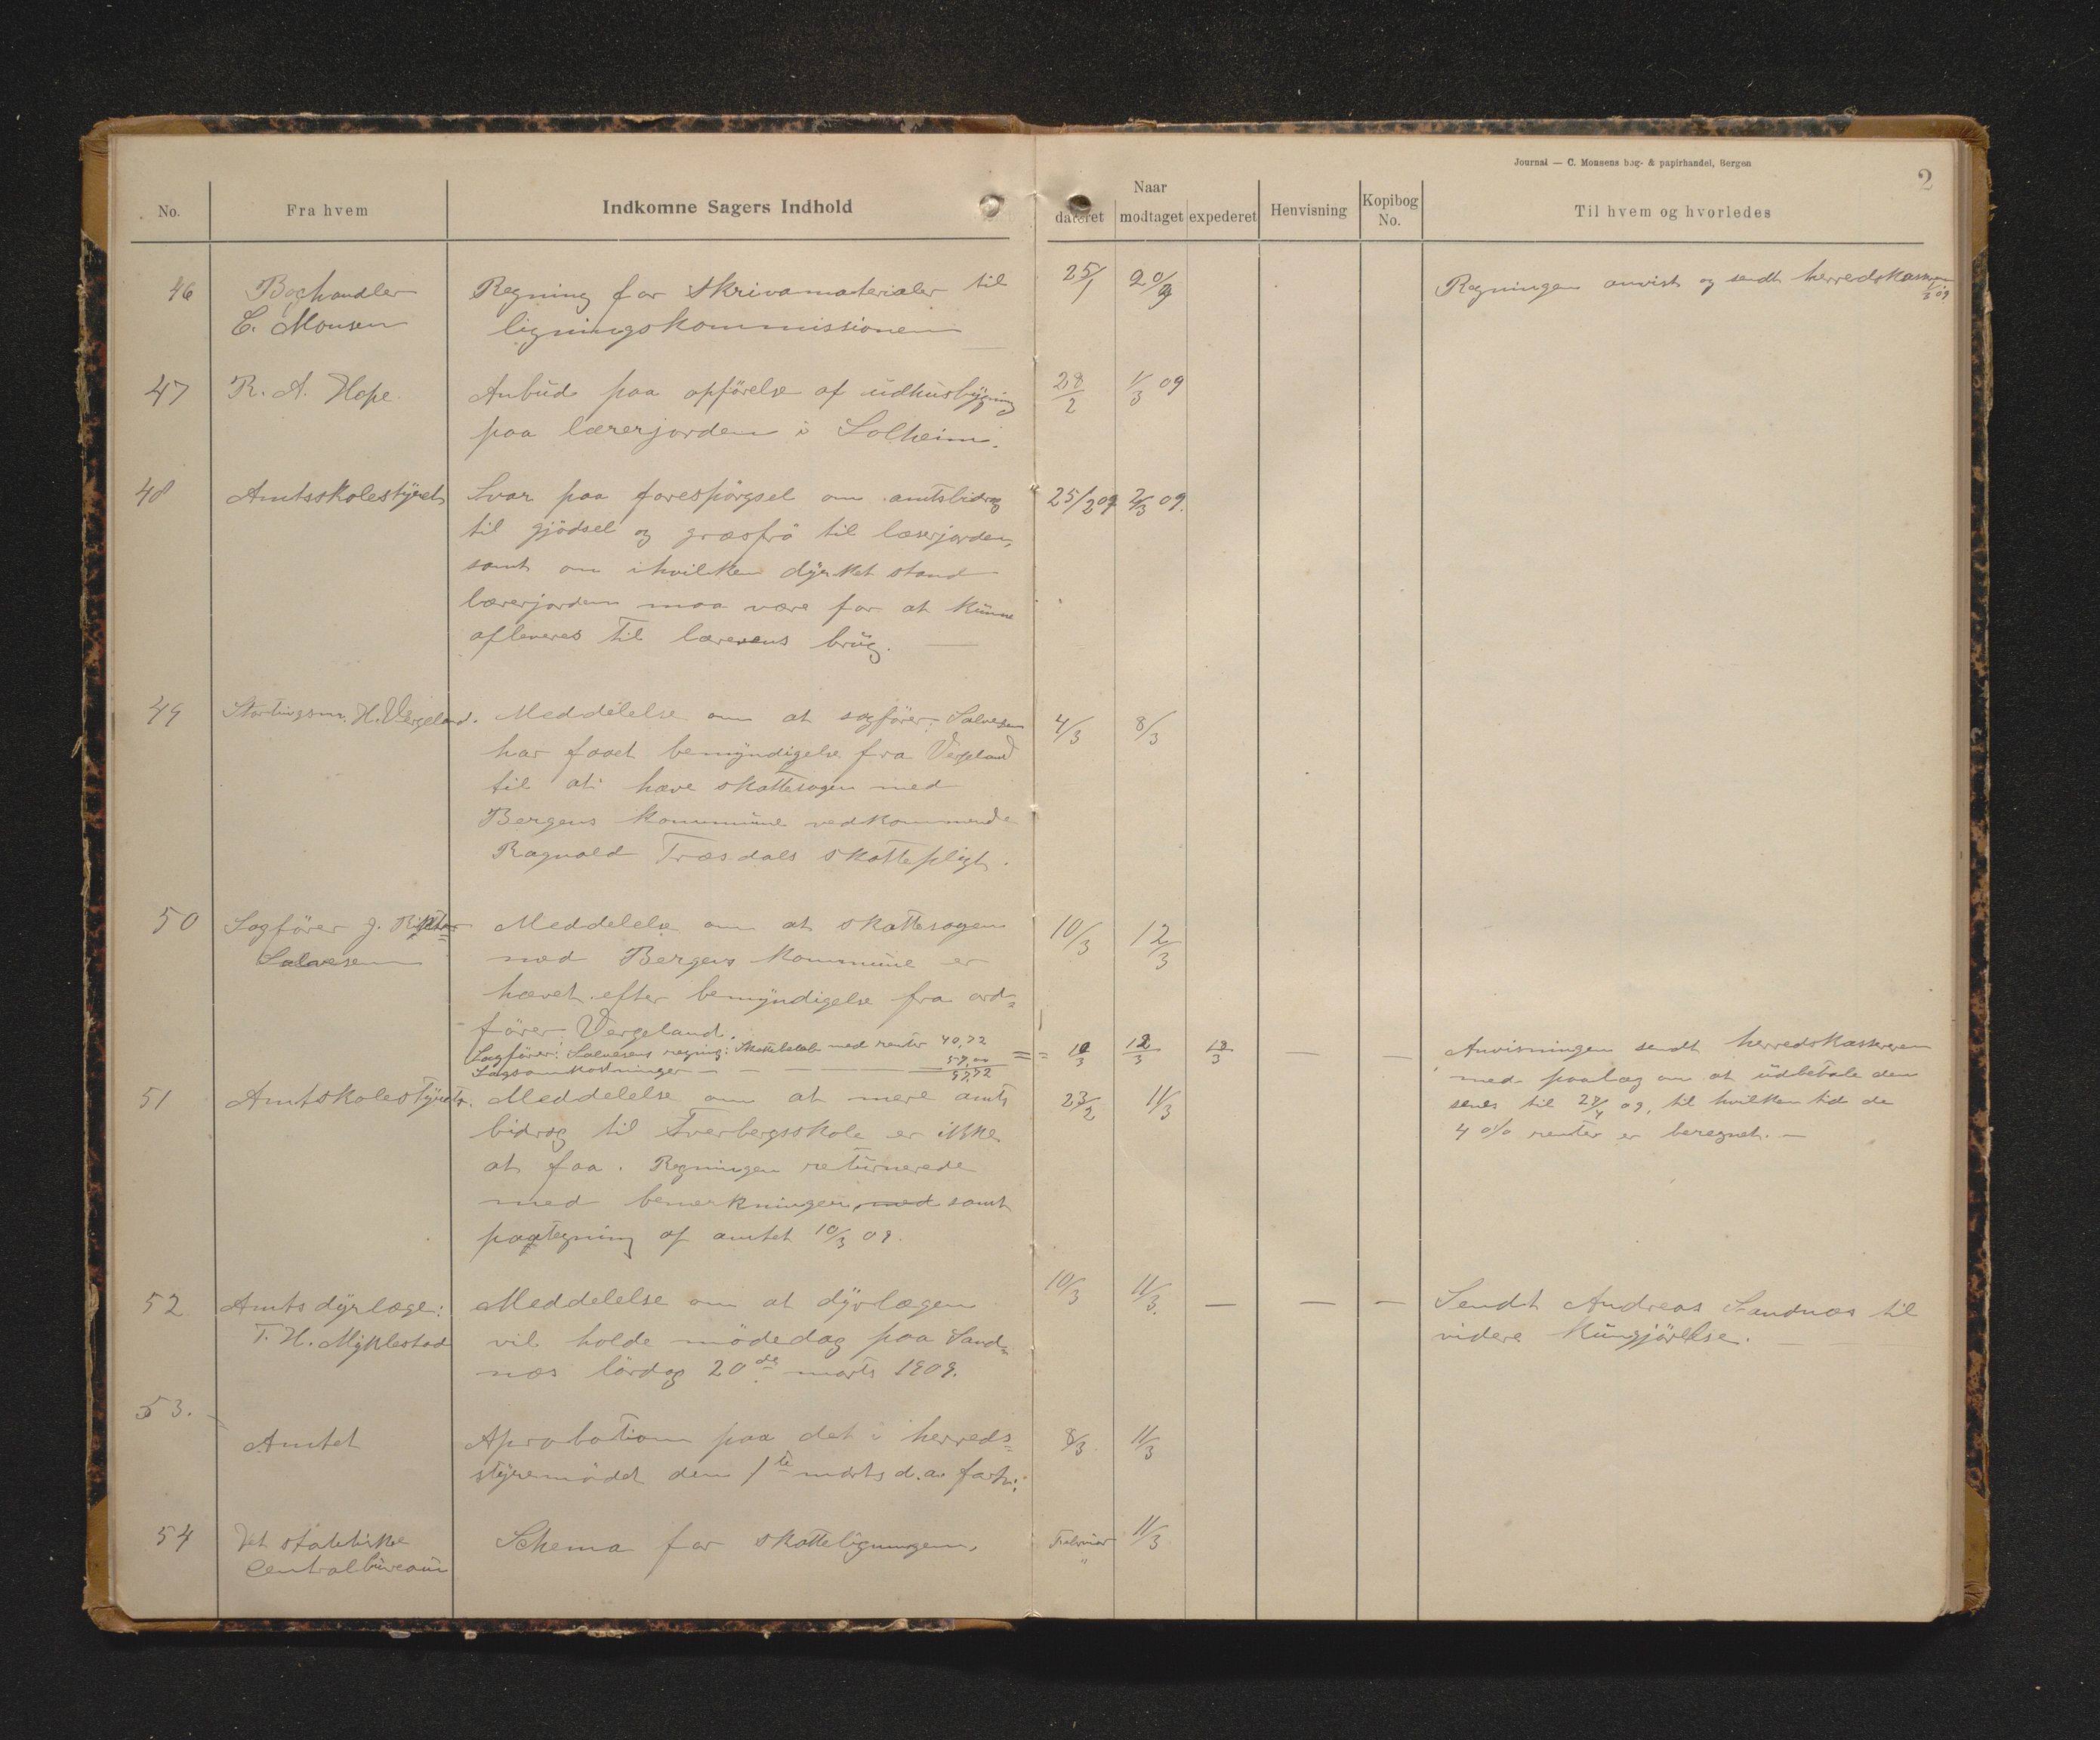 Journal — C. Monsens bog- & papirhandel, Bergen
2
No. Fra hvem Indkomne Sagers Indhold Naar dateret modtaget expederet Henvisning Kopibog No. Til hvem og hvorledes
46 Boghandler Regning for Skrivamaterialer til 25/1 Regningen anvist og sendt herredskassereren 1/3 09.
C. Monsen ligningskommissionen
47 R. A. Hope. Anbud paa opförelse af udhusbygning 28/2 1/3 09
paa lærerjorden i Solheim.
48 Amtsskolestyret Svar paa forespörgsel om amtsbidrag 25/2 09 2/3 09.
til gjödsel og græsfrö til læserjorden,
samt om ihvilken dyrket stand
lærerjorden maa være for at kunne
afleveres til lærerens brug.
49 Stortingsm. H. Vergeland. Meddelelse om at sagförer: Salvesen 4/3 8/3
har faaet bemyndigelse fra Vergeland
til at hæve skattesagen med
Bergens kommune vedkommende
Ragnald Træsdals skattepligt.
50 Sagförer J. Rikter Meddelelse om at skattesagen 10/3 12/3
Salvesen med Bergens kommune er
hævet efter bemyndigelse fra ord=
förer Vergeland.
Sagförer: Salvesens regning: Skattebelöb med renter 40,72 = = 10/3 12/3 12/3 — — Anvisningen sendt herredskassereren
Sagsomkostninger — — — — 57,00
97,72
med paalæg om at udbetale den
senes til 29/4 09, til hvilken tid de
4 % renter er beregnet. —
51 Amtskolestyret. Meddelelse om at mere amts 23/2 11/3
bidrag til Tverbergsskole er ikke
at faa. Regningen returnerede
med bemerkningen, med samt
paategning af amtet 10/3 09.
52 Amtsdyrlæge: Meddelelse om at dyrlægen 10/3 11/3. — — — Sendt Andreas Sandnæs til
T. H. Myklestad vil holde mödedag paa Sand= videre kungjörelse.
næs lördag 20de marts 1909.
53.
Amtet Aprobation paa det i herreds= 8/3. 11/3
styremödet den 1te marts d.a. fatn:
54 Det statistiske Schema for skatteligningen, Februar 11/3
Centralbureau "